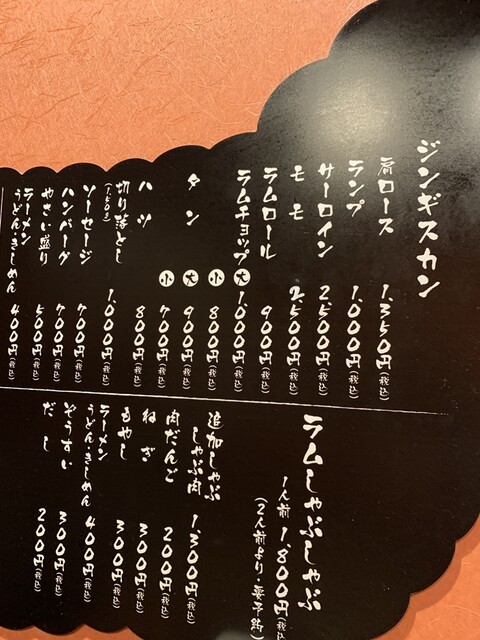 ジンギスカン
肩ロース 1.350円(税込)
ランプ 1.000円(税込)
サーロイン 2.500円(税込)
モモ 2.500円(税込)
ラムロール 900円(税込)
ラムチョップ 大 1.000円(税込)
小 800円(税込)
タン 大 900円(税込)
小 700円(税込)
ハツ 800円(税込)
切り落とし(150g) 1.000円(税込)
ソーセージ 700円(税込)
ハンバーグ 700円(税込)
やさい盛り 500円(税込)
ラーメン
うどん・きしめん 400円(税込)
ラムしゃぶしゃぶ
1人前 1.800円(税込)
(2人前より・要予約)
追加しゃぶ
しゃぶ肉 1.300円(税込)
肉だんご 200円(税込)
ねぎ 300円(税込)
もやし 300円(税込)
ラーメン
うどん・きしめん 400円(税込)
ぞうすい 300円(税込)
だし 200円(税込)